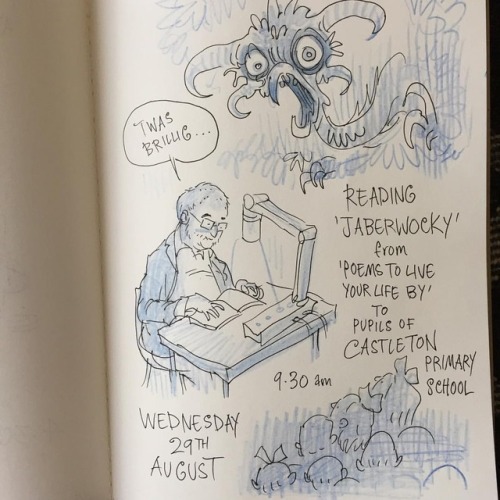 'TWAS
BRILLIG...
READING
'JABERWOCKY'
from
'POEMS TO LIVE
YOUR LIFE BY'
TO
PUPILS OF
CASTLETON
PRIMARY
SCHOOL
9.30 am
WEDNESDAY
29TH
AUGUST